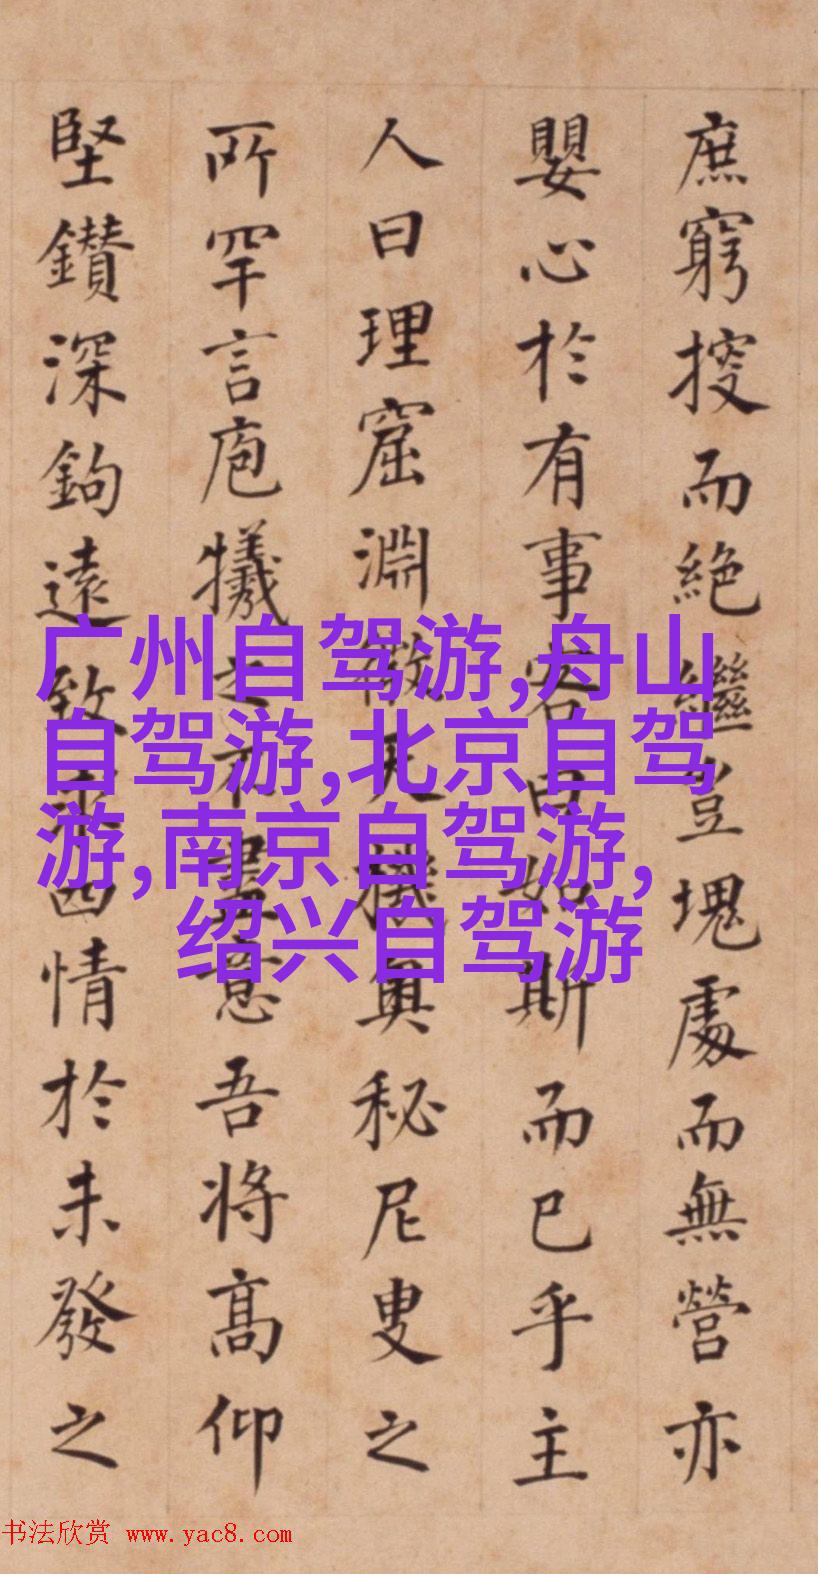 庶窮搜而絕繼豈塊處而無營亦
嬰心於有事客曰如斯而已乎主
人曰理窟淵微天機奧秘尼叟之
所罕言庖犧之不盡意吾將高仰
堅鑽深鉤遠致四情於未發之
广州自驾游,舟山
自驾游,北京自驾
游,南京自驾游,
绍兴自驾游
书法欣赏 www.yac8.com